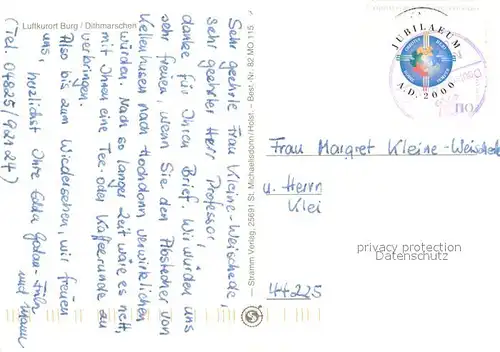 Luftkurort Burg / Dithmarschen
Sehr geehrte Frau Kleine-Weischede,
sehr geehrter Herr Professor,
danke für Ihren Brief. Wir würden uns
sehr freuen, wenn Sie den Abstecher von
Kellenhusen nach Hochdonn verwirklichen
würden. Nach so langer Zeit wäre es nett,
mit Ihnen eine Tee- oder Kaffeerunde zu
verbringen.
Also bis zum Wiedersehen, wir freuen
uns, herzlichst Ihre
und Mann
(Tel. 04825/92424)
— Stramm Verlag, 25691 St. Michaelisdonn/Holst. – Best.-Nr. B2 MO 115
JUBILAEUM
A.D. 2000
110
Frau Margret Kleine-Weischede
u. Herrn
Klei
privacy protection
Datenschutz
44225